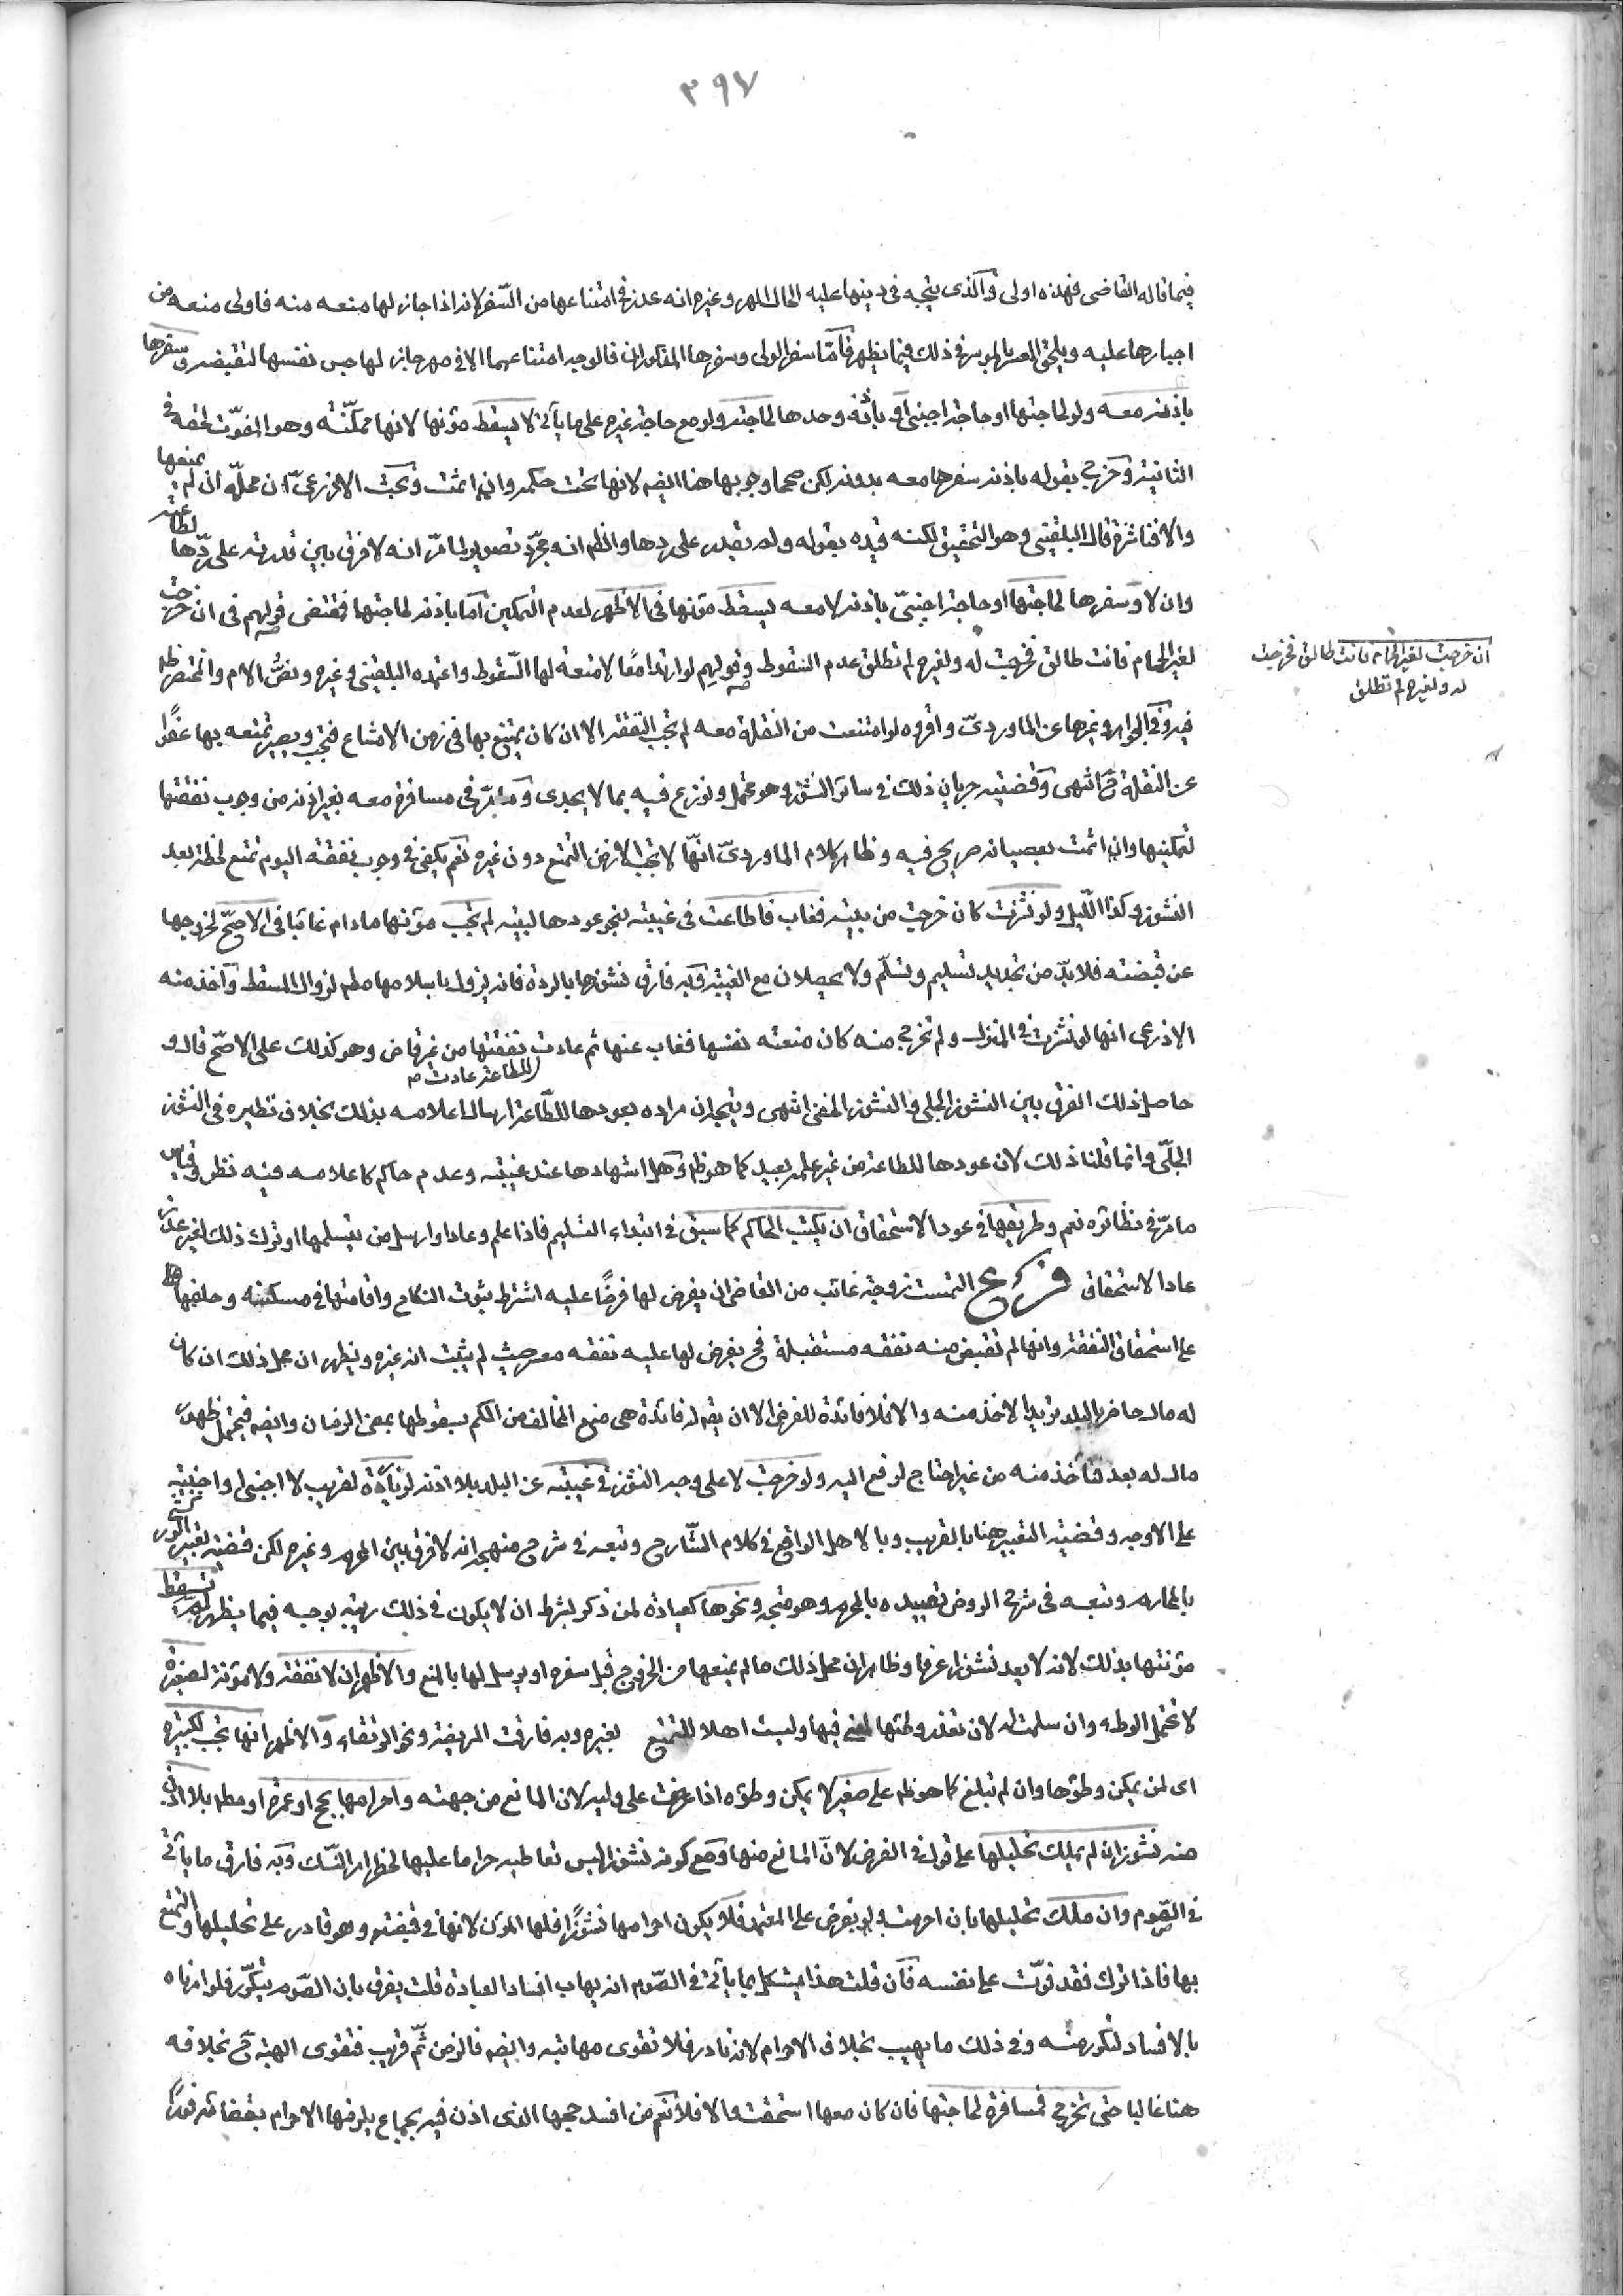 ٣٩٧
فيما قاله القاضى فهذه اولى والذى يتجه فى دينها عليه الحال المهر وغيره انه عذر فى امتناعها من السفر لانه اذا جاز لها منعه منه فاولى منعه من
اجبارها عليه ويلحق المعسر بالموسر فى ذلك فيما يظهر فامّا سفر الولى وسفرها المذكوران فالوجه امتناعهما الا فى مهر جاز لها حبس نفسها لتقبضه وسفرها
باذنه معه ولو لحاجتها او حاجة اجنبى او باذنه وحدها لحاجته ولو مع حاجة غيره على ما يأتى لا يسقط مؤنها لانها ممكّنته وهو المفوّت لحقه فى
الثانية وخرج بقوله باذنه سفرها معه بدونه لكن صححا وجوبها هنا ايضه لانها تحت حكمه وان اثمت وبحث الاذرعىّ ان محلّه ان لم يمنعها
والا فناشزة قال البلقينى وهو التحقيق لكنه قيده بقوله ولم يقدر على ردها والظم انه مجرّد تصوير لما مرّ انه لا فرق بين قدرته على ردّها لطاعته
وان لا وسفرها لحاجتها او حاجة اجنبىّ باذنه لا معه يسقط مؤنها فى الاظهر لعدم التمكين اما باذنه لحاجتهما فمقتضى قولهم فى ان خرجت
لغير الحمام فانت طالق فخرجت له ولغيره لم تطلق عدم السقوط وقولهم لو ارتدا معًا لا متعة لها السّقوط واعتمده البلقينى وغيره ونصُّ الام والمختصر ظم
ان خرجت لغير الحمام فانت طالق فخرجت
له ولغيره لم تطلق
فيه وفى الجواهر وغيرها عن الماوردىّ واقروه لو امتنعت من النقلة معه لم تجب النفقة الا ان كان يتمتع بها فى زمن الامتناع فتجب ويصير تمتعه بها عفوًا
عن النقلة ح انتهى وقضيته جريان ذلك فى سائر النشوز وهو محتمل ونوزع فيه بما لا يجدى وما مرّ فى مسافرة معه بغير اذنه من وجوب نفقتها
لتمكينها وان اثمت بعصيانه صريح فيه وظاهر كلام الماوردىّ انّها لا تجب الا زمن التمتع دون غيره نعم يكفى فى وجوب نفقة اليوم تمتع لحظة بعد
النشوز وكذا اللّيل ولو نشزت كان خرجت من بيته فغاب فاطاعت فى غيبته بنحو عودها لبيته لم تجب مؤنها مادام غائبا فى الاصحّ لخروجها
عن قبضته فلا بدّ من تجديد تسليم وتسلّم ولا يحصلان مع الغيبة وبه فارق نشوزها بالردة فانه يزول باسلامها مطم لزوال المسقط واخذ منه
الاذرعى انها لو نشزت فى المنزل ولم تخرج منه كان منعته نفسها فغاب عنها ثم عادت للطاعة عادت نفقتها من غير قاض وهو كذلك على الاصحّ قال و
حاصل ذلك الفرق بين النشوز الجلى والنشوز الخفى انتهى ويتجه ان مراده بعودها للطّاعة ارسال اعلامه بذلك بخلاف نظيره فى النشوز
الجلّى وانما قلنا ذلك لان عودها للطاعة من غير علمه بعيد كما هو ظم وهل اشهادها عند غيبته وعدم حاكم كاعلامه فيه نظر وقياس
ما مرّ فى نظائره نعم وطريقها فى عود الاستحقاق ان يكتب الحاكم كما سبق فى ابتداء التسليم فاذا علم وعاد او ارسل من يتسلمها او ترك ذلك لغير عذر
عاد الاستحقاق فرع التمست زوجة غائب من القاضى ان يفرض لها فرضًا عليه اشترط ثبوت النكاح واقامتها فى مسكنه وحلفها
على استحقاق النفقة وانها لم تقبض منه نفقة مستقبلة فح يفرض لها عليه نفقة معسر حيث لم يثبت انه غيره ويظهر ان محل ذلك ان كان
له مال حاضر بالبلد تريد الاخذ منه والا فلا فائدة للفرض الا ان يقم له فائدة هى منع المخالف من الحكم بسقوطها بمضى الزمان وايضه فيحتمل ظهور
مال له بعد فتأخذ منه من غير احتياج لرفع اليه ولو خرجت لا على وجه النشوز فى غيبته عن البلد بلا اذنه لزيارة لقريب لا اجنبى او اجنبية
على الاوجه وقضية التعبير هنا بالقريب وبالاهل الواقع فى كلام الشّارح وتبعه فى شرح منهجه انه لا فرق بين المحرم وغيره لكن قضية تعبير
بالمحارم وتبعه فى شرح الروض تقييده بالمحرم وهو متجه ونحوها كعيادة لمن ذكر بشرط ان لا يكون فى ذلك ريبة بوجه فيما يظهر لم تسقط
مؤنتها بذلك لانه لا يعد نشوزا عرفا وظاهر ان محل ذلك ما لم يمنعها من الخروج قبل سفره او يرسل لها بالمنع والاظهر ان لا نفقة ولا مؤنة لصغيرة
لا تحتمل الوطء وان سلمت له لان تعذر وطئها لمعنى فيها وليست اهلا للتمتع بغيره وبه فارقت المريضة ونحو الرتقاء والاظهر انها تجب لكبيرة
اى لمن يمكن وطؤها وان لم تبلغ كما هو ظم على صغير لا يمكن وطؤه اذا عرضت على وليه لان المانع من جهته واحرامها بحج او عمرة او مطم بلا اذن
منه نشوز ان لم يملك تحليلها على قول فى الفرض لانّ المانع منها ومع كونه نشوزا ليس تعاطيه حراما عليها لخطر امر النسك وبه فارق ما يأتى
فى الصّوم وان ملك تحليلها بان احرمت ولو بفرض على المعتمد فلا يكون احرامها نشوزًا فلها المؤن لانها فى قبضته وهو قادر على تحليلها والتمتع
بها فاذا ترك فقد فوّت على نفسه فان قلت هذا يشكل بما يأتى فى الصّوم انه يهاب افساد العبادة قلت يفرق بان الصّوم يتكرّر فلو امرناه
بالافساد لتكرر منه وفى ذلك ما يهيب بخلاف الاحرام لانه نادر فلا تقوى مهابته وايضه فالزمن ثمّ قريب فتقوى الهيبة ح بخلافه
هنا غالبا حتى تخرج فمسافرة لحاجتها فان كان معها استحقت والا فلا نعم من افسد حجها الذى اذن فيه بجماع يلزمها الاحرام بقضائه فورًا